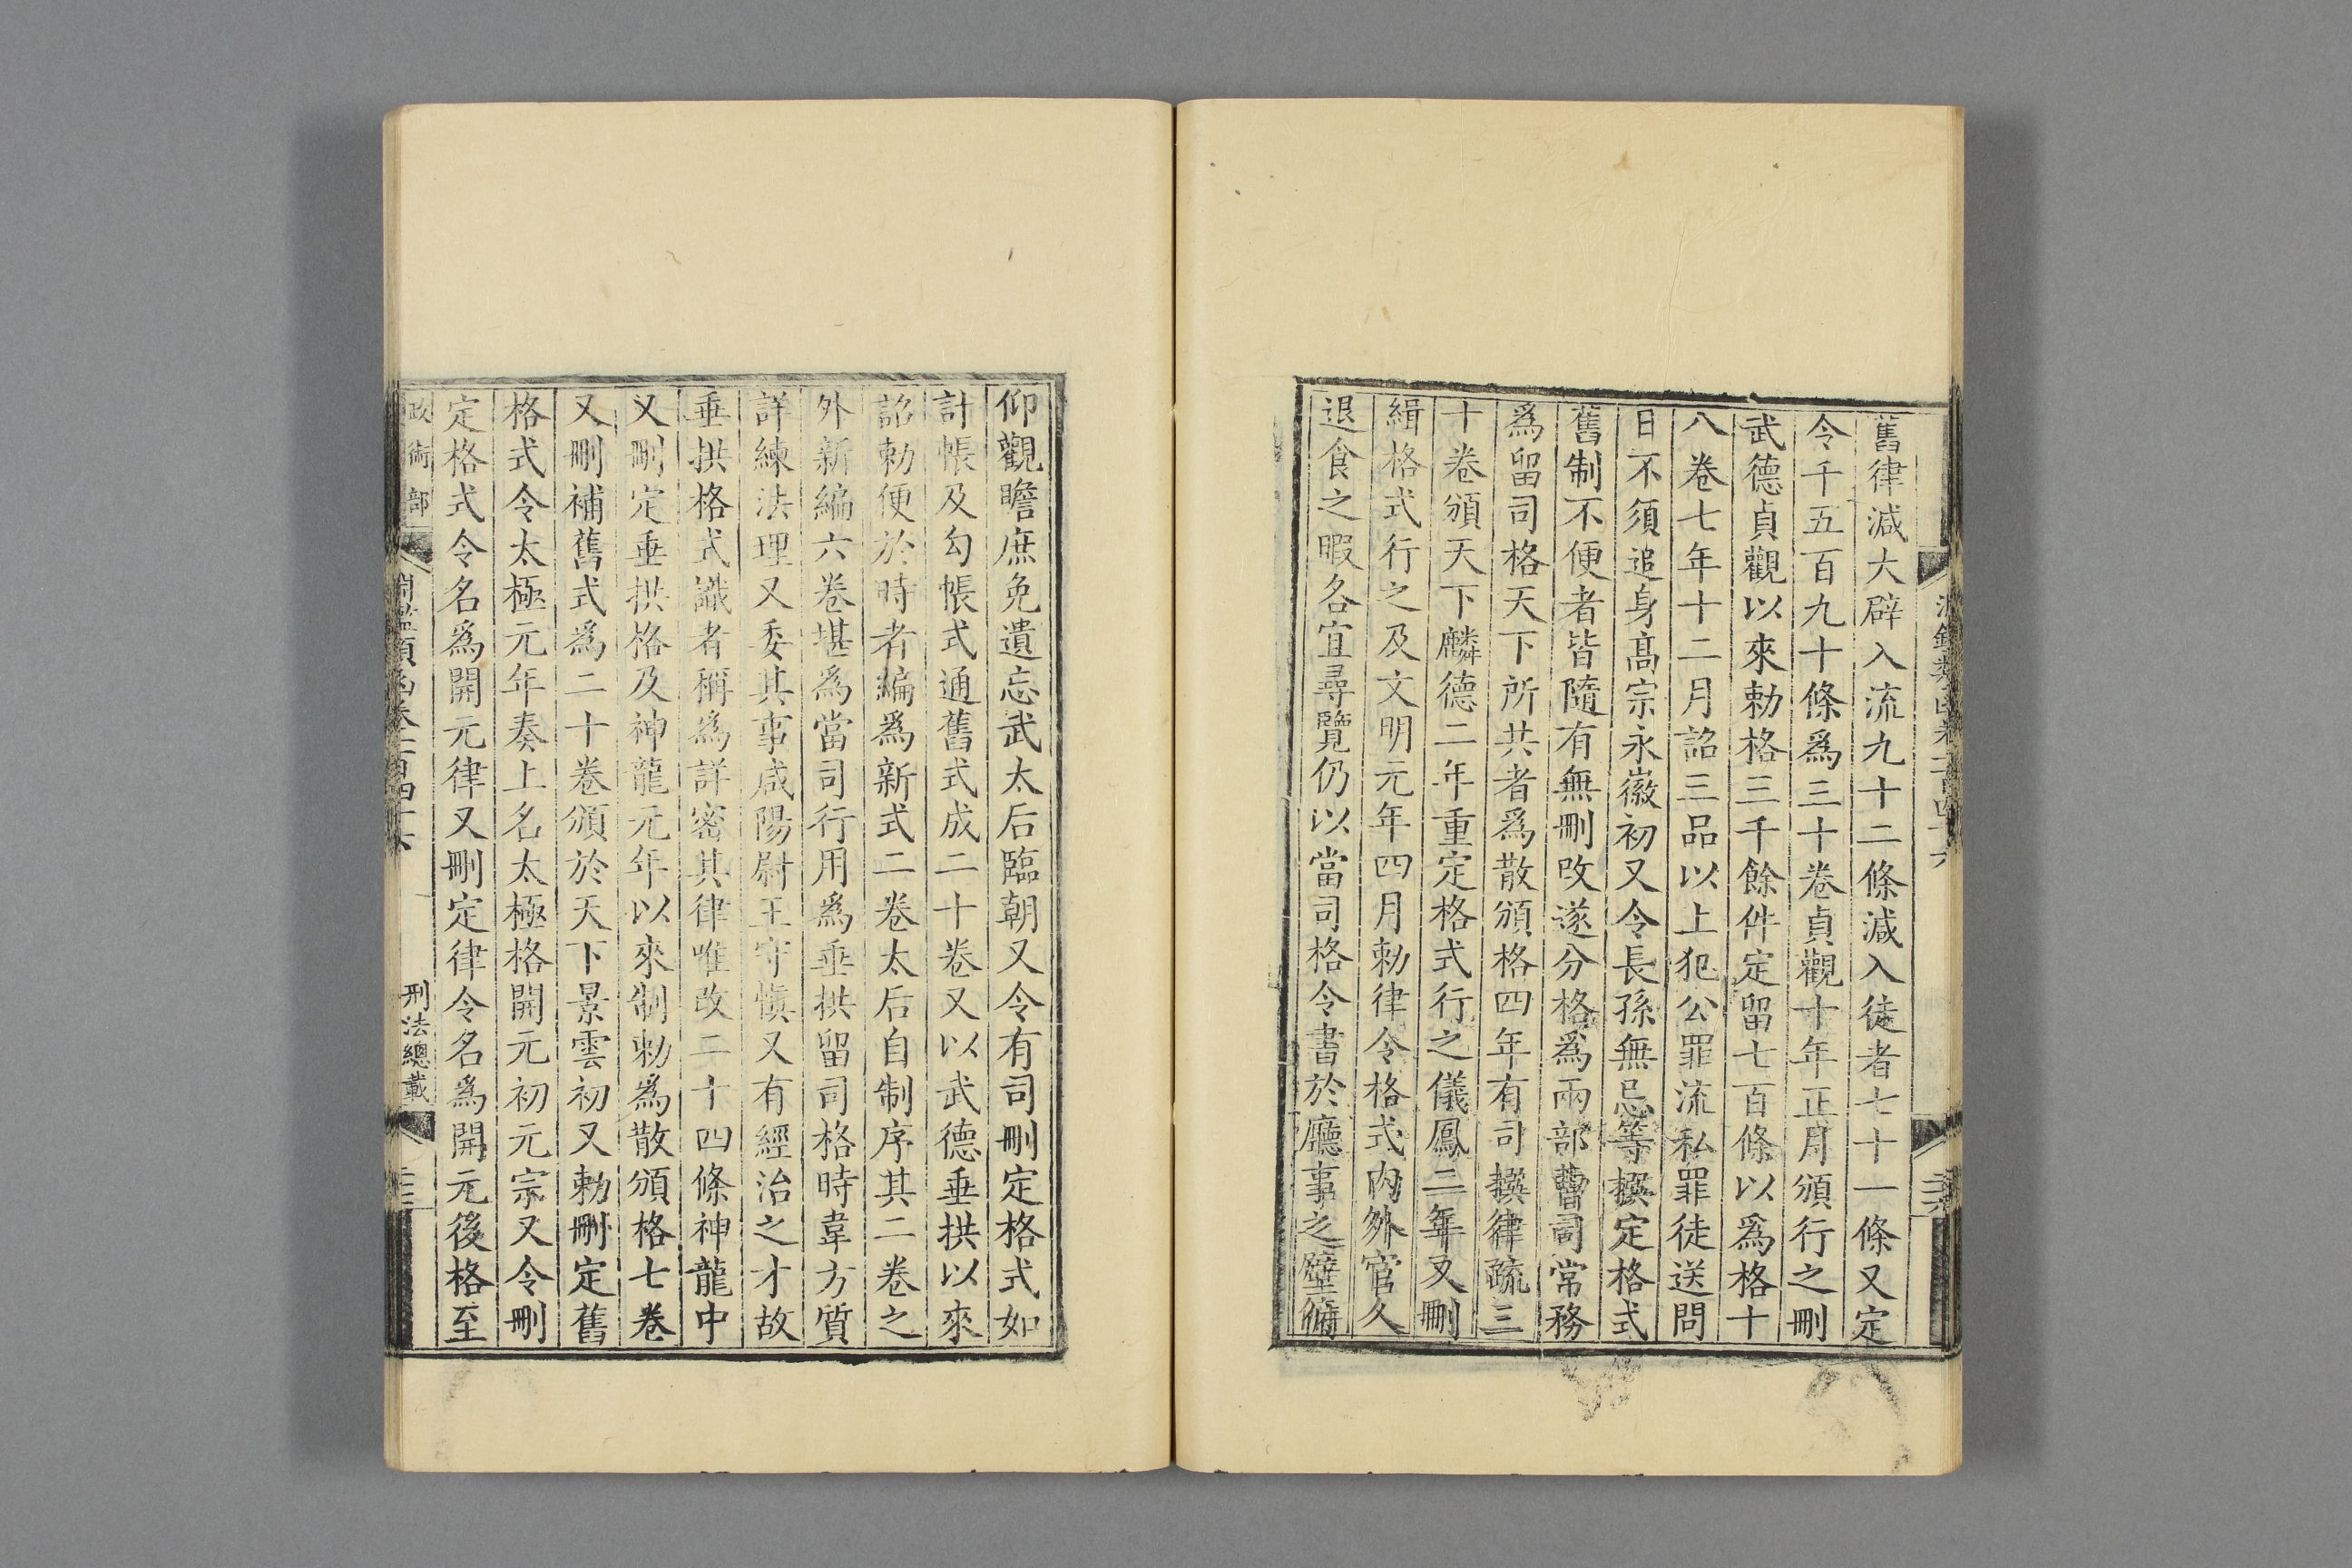 舊律減大辟入流九十二條減入徒者七十一條又定
令千五百九十條爲三十卷貞觀十年正月頒行之刪
武德貞觀以來勅格三千餘件定留七百條以爲格十
八卷七年十二月詔三品以上犯公罪流私罪徒送問
日不須追身高宗永徽初又令長孫無忌等撰定格式
舊制不便者皆隨有無刪改遂分格爲兩部曹司常務
爲留司格天下所共者爲散頒格四年有司撰律疏三
十卷頒天下麟德二年重定格式行之儀鳳二年又刪
緝格式行之及文明元年四月勅律令格式內外官久
退食之暇各宜尋覽仍以當司格令書於廳事之壁俯
仰觀瞻庶免遺忘武太后臨朝又令有司刪定格式如
計帳及勾帳式通舊式成二十卷又以武德垂拱以來
詔勅便於時者編爲新式二卷太后自制序其二卷之
外新編六卷堪爲當司行用爲垂拱留司格時韋方質
詳練法理又委其事咸陽尉王守愼又有經治之才故
垂拱格式識者稱爲詳密其律唯改二十四條神龍中
又刪定垂拱格及神龍元年以來制勅爲散頒格七卷
又刪補舊式爲二十卷頒於天下景雲初又勅刪定舊
格式令太極元年奏上名太極格開元初元宗又令刪
定格式令名爲開元律又刪定律令名爲開元後格至
政術部
刑法總載